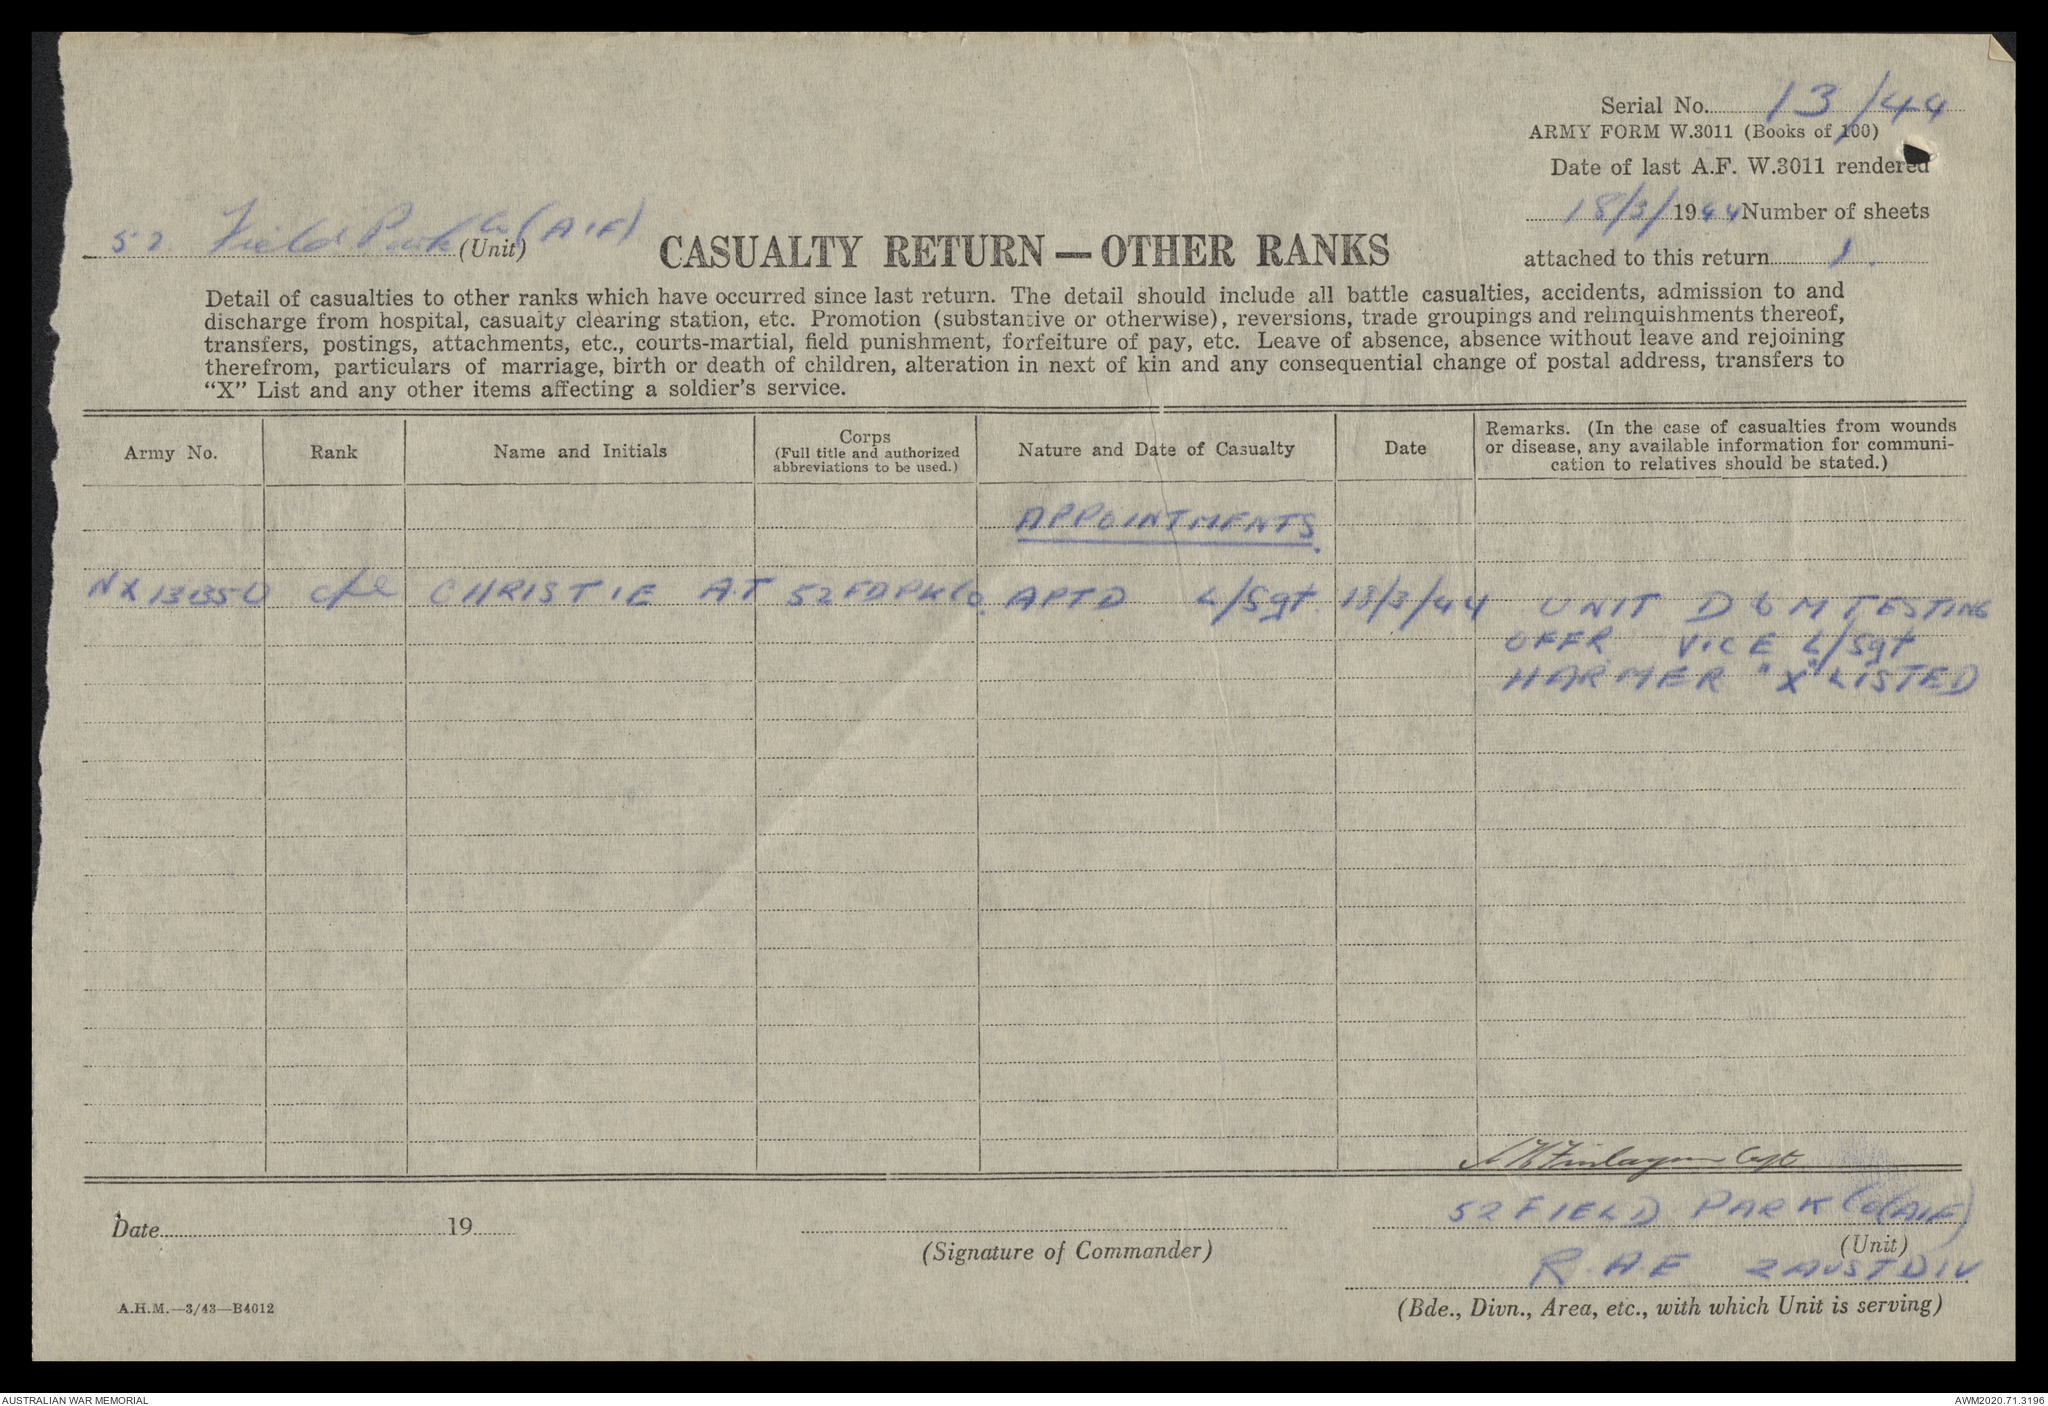 Serial No. 13/44
ARMY FORM W.3011 (Books of 100)
Date of last A.F. W.3011 rendered
18/3/1944 Number of sheets
attached to this return 1.
52 Field Park Co (AIF)
(Unit)
CASUALTY RETURN — OTHER RANKS
Detail of casualties to other ranks which have occurred since last return. The detail should include all battle casualties, accidents, admission to and
discharge from hospital, casualty clearing station, etc. Promotion (substantive or otherwise), reversions, trade groupings and relinquishments thereof,
transfers, postings, attachments, etc., courts-martial, field punishment, forfeiture of pay, etc. Leave of absence, absence without leave and rejoining
therefrom, particulars of marriage, birth or death of children, alteration in next of kin and any consequential change of postal address, transfers to
"X" List and any other items affecting a soldier's service.
Army No. Rank Name and Initials Corps (Full title and authorized abbreviations to be used.) Nature and Date of Casualty Date Remarks. (In the case of casualties from wounds
or disease, any available information for communi-
cation to relatives should be stated.)
APPOINTMENTS.
CHRISTIE A.T 52 FD PK Co. APTD L/Sgt. 18/3/44 UNIT D & M TESTING
OFFR VICE L/Sgt
HARMER "X" LISTED
Finlayson Capt
Date 19
(Signature of Commander)
52 FIELD PARK Co (AIF)
(Unit)
R.A.E 2 AUST DIV
(Bde., Divn., Area, etc., with which Unit is serving)
A.H.M.—3/43—B4012
AUSTRALIAN WAR MEMORIAL
AWM2020.71.3196